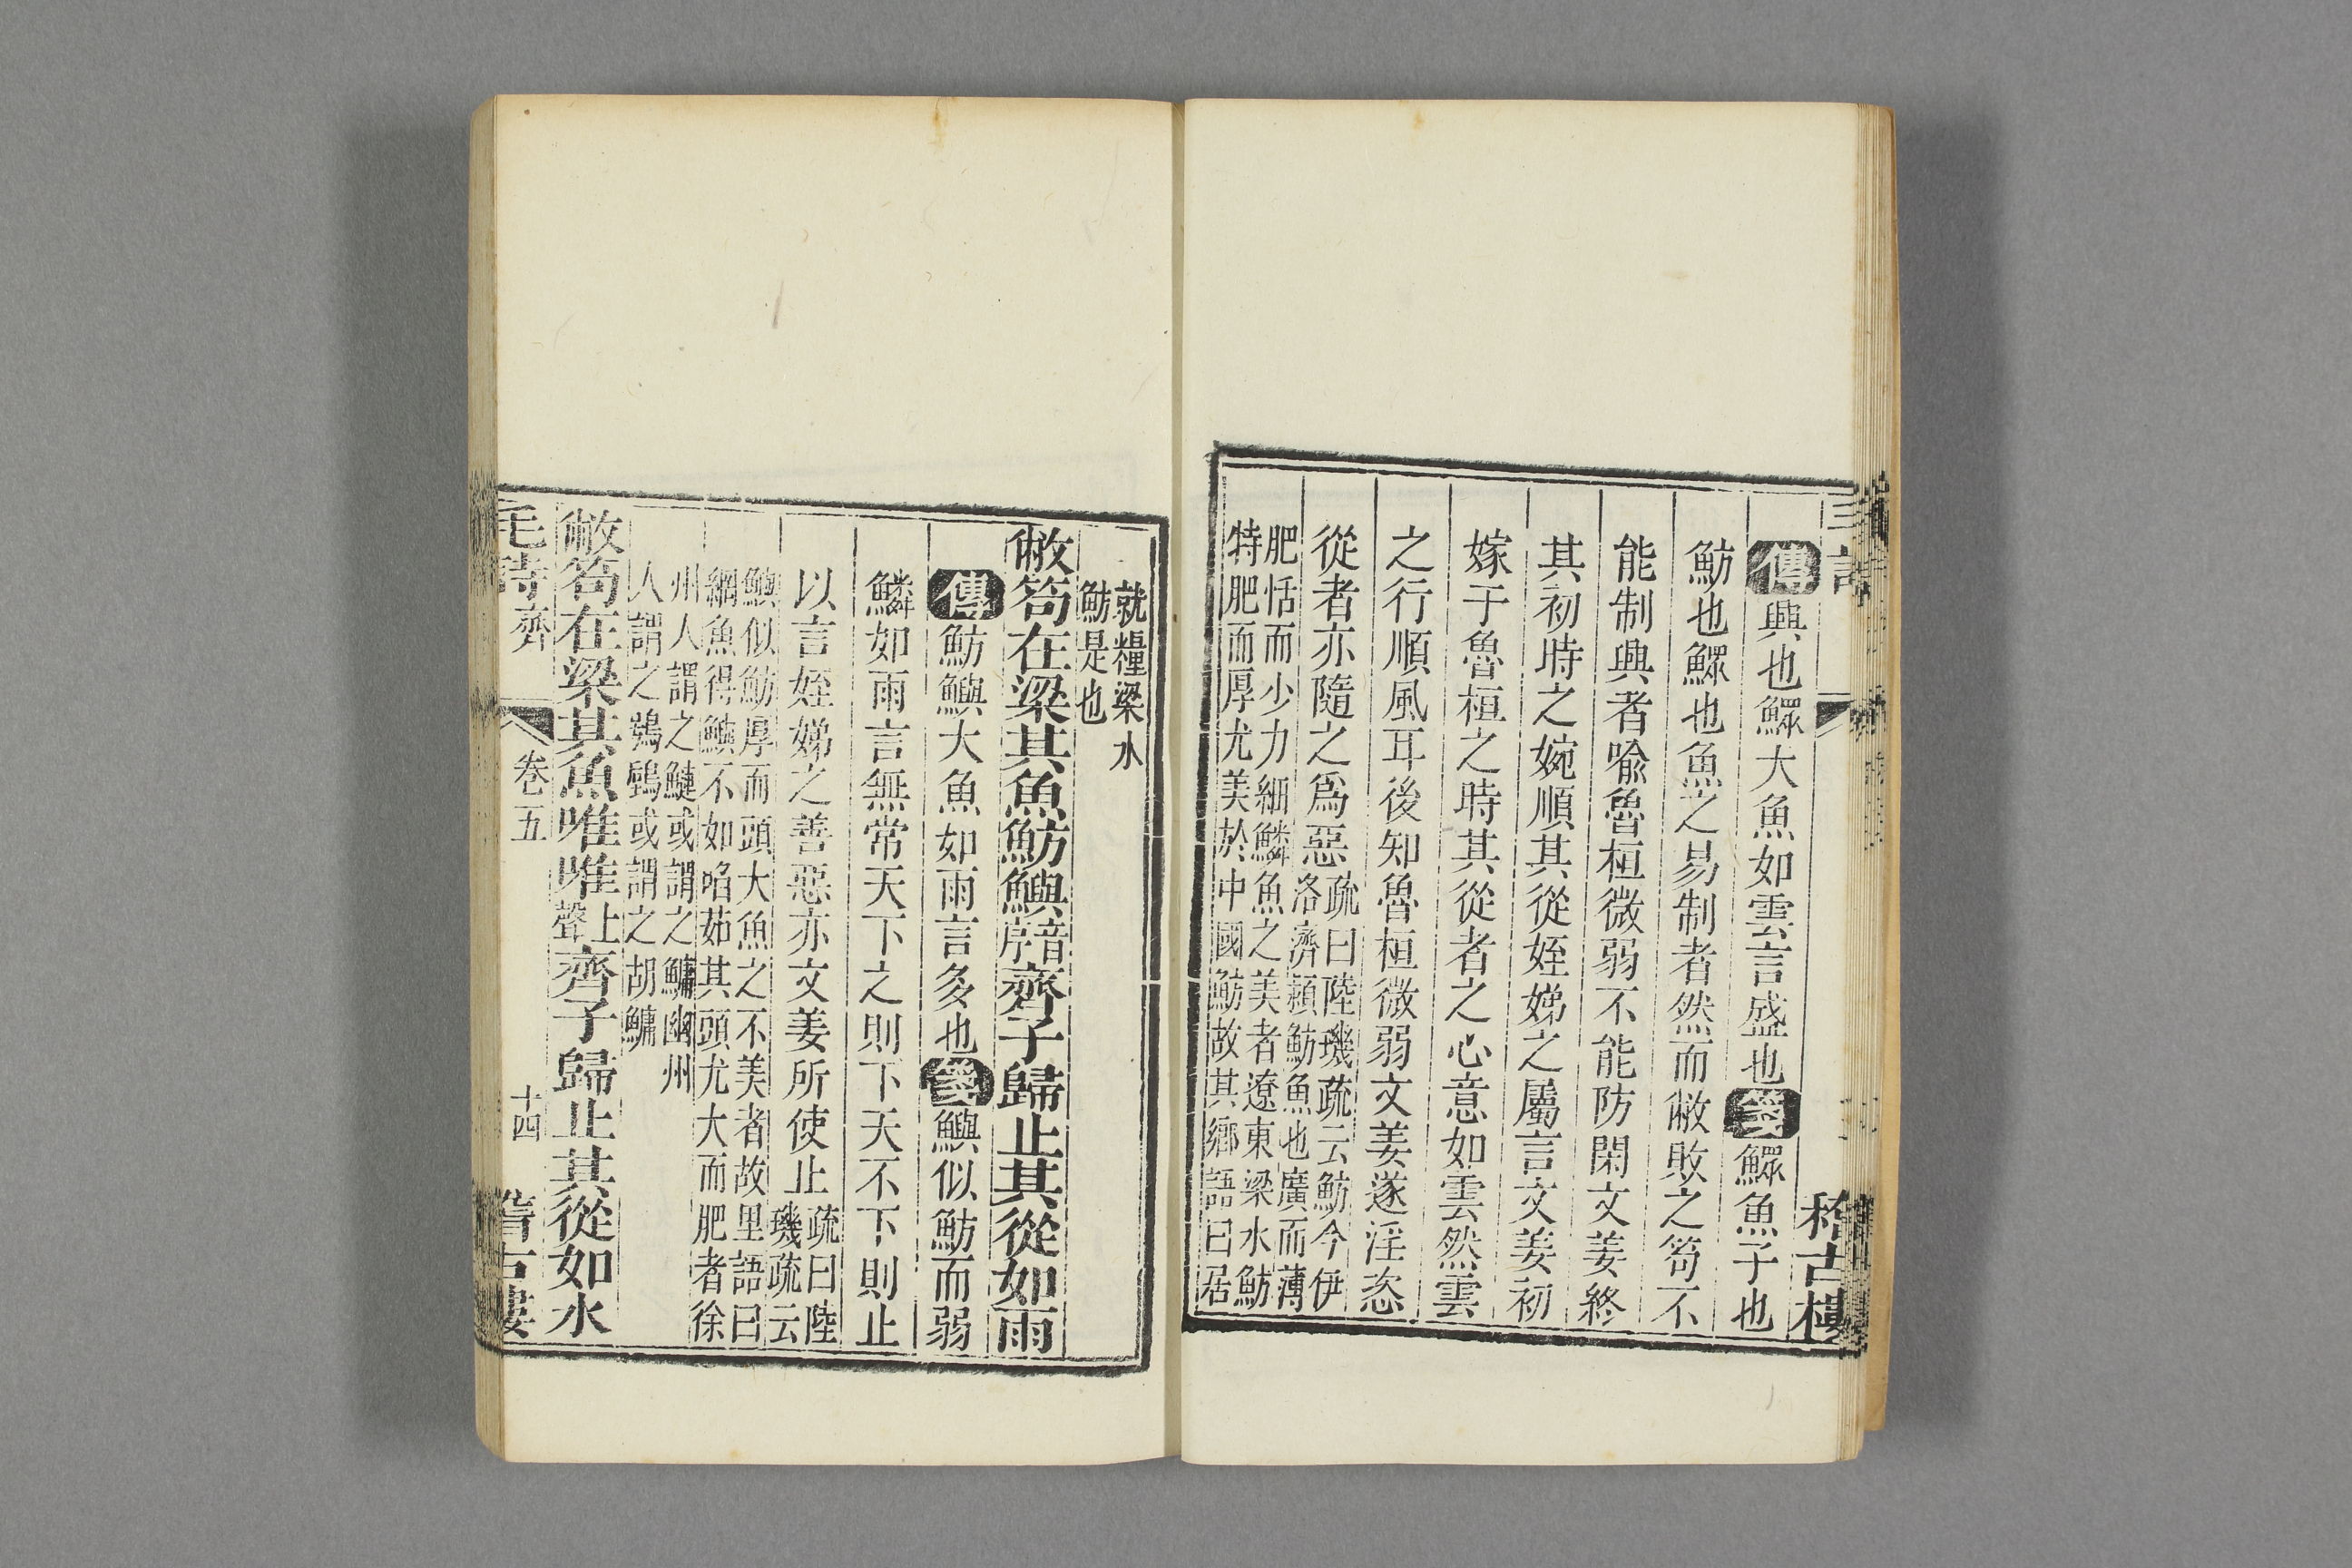 傳興也鰥大魚如雲言盛也箋鰥魚子也
魴也鰥也魚之易制者然而敝敗之笱不
能制興者喻魯桓微弱不能防閑文姜終
其初時之婉順其從姪娣之屬言文姜初
嫁于魯桓之時其從者之心意如雲然雲
之行順風耳後知魯桓微弱文姜遂淫恣
從者亦隨之爲惡疏曰陸璣疏云魴今伊
洛濟潁魴魚也廣而薄
肥恬而少力細鱗魚之美者遼東梁水魴
特肥而厚尤美於中國魴故其鄉語曰居
稽古樓
就糧梁水
魴是也
敝笱在梁其魚魴鱮音序齊子歸止其從如雨
傳魴鱮大魚如雨言多也箋鱮似魴而弱
鱗如雨言無常天下之則下天不下則止
以言姪娣之善惡亦文姜所使止疏曰陸
璣疏云
鱮似魴厚而頭大魚之不美者故里語曰
網魚得鱮不如啗茹其頭尤大而肥者徐
州人謂之鰱或謂之鱅幽州
人謂之鴞鴟或謂之胡鱅
敝笱在梁其魚唯唯上聲齊子歸止其從如水
毛詩 齊 卷五 十四